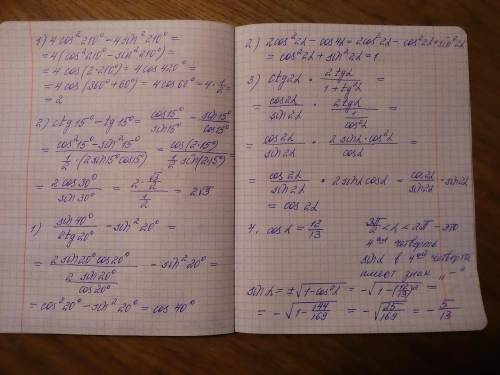 1) 4cos²210° - 4sin²210° =
= 4(cos²210° - sin²210°) =
= 4cos(2·210°) = 4cos420° =
= 4cos(360°+60°) = 4cos60° = 4·1/2 =
= 2
2) ctg15° - tg15° = cos15°/sin15° - sin15°/cos15° =
= (cos²15° - sin²15°)/(1/2·(2sin15°cos15°)) = cos(2·15°)/(1/2 sin(2·15°)) =
= 2cos30°/sin30° = (2·√3/2)/(1/2) = 2√3
1) sin40°/2tg20° - sin²20° =
= 2sin20°cos20°/(2 sin20°/cos20°) - sin²20° =
= cos²20° - sin²20° = cos40°
2) 2cos²2α - cos4α = 2cos²2α - cos²2α + sin²2α
= cos²2α + sin²2α = 1
3) ctg2α · 2tgα/(1+tg²α) =
= cos2α/sin2α · 2tgα/(1/cos²α) =
= cos2α/sin2α · 2sinα·cos²α/cosα =
= cos2α/sin2α · 2sinα cosα = cos2α/sin2α · sin2α
= cos2α
4. cosα = 12/13 3π/2 < α < 2π - это
4ая четверть
sinα в 4ой четверти
имеет знак „-"
sinα = ±√(1-cos²α) = -√(1-(12/13)²) =
= -√(1-144/169) = -√(25/169) = -5/13